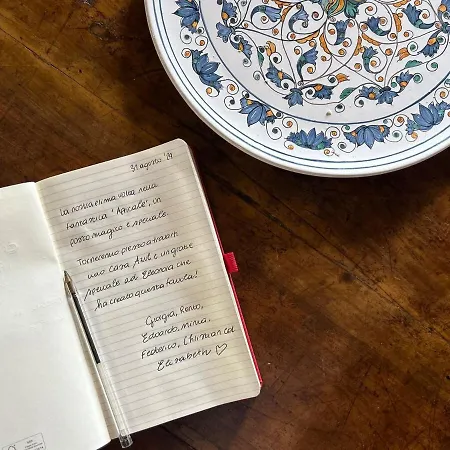 31 agosto '24
La nostra prima volta nella
fantastica "Agricale", un
posto magico e speciale.
Torneremo presto a trovarti
uno Casa Azul e un grazie
speciale ad Eleonora che
ha creato questa favola!
Giorgia, Renzo,
Edoardo, Mirna,
Federico, Christian ed
Elizabeth ♡